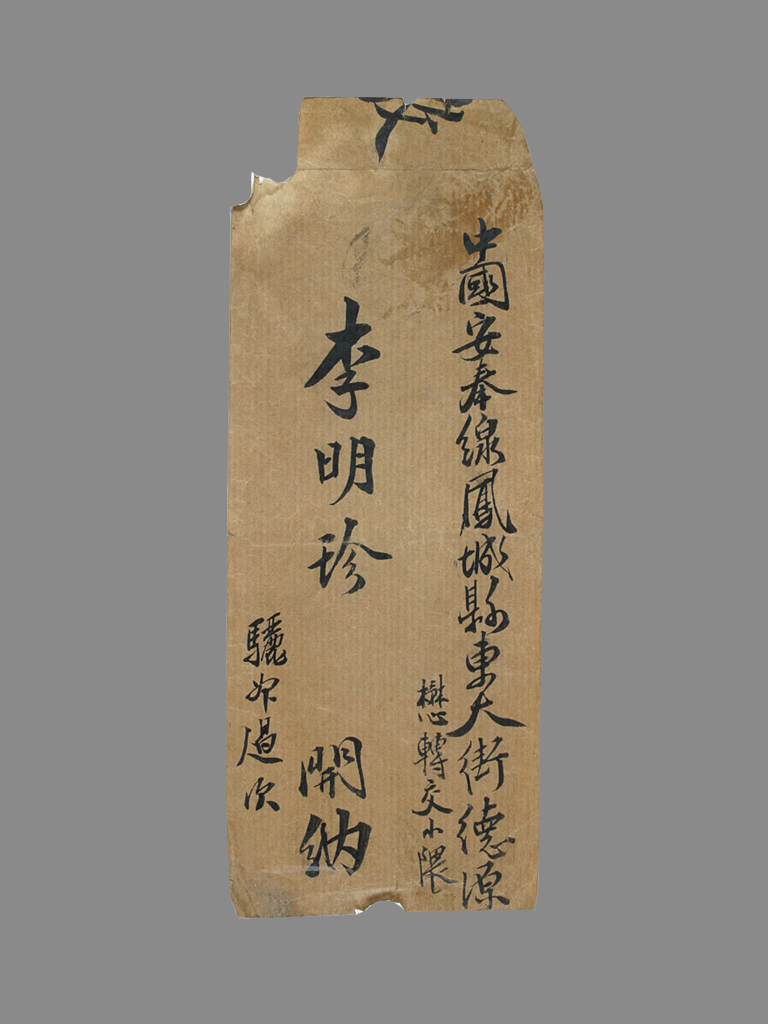 中國安奉線鳳城縣東大街德源
懋轉交小隈
李明珍 開納
驪
次